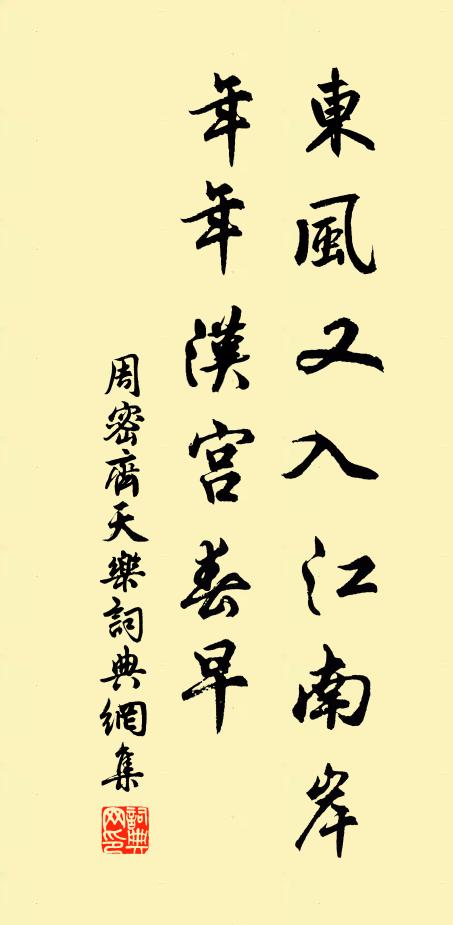 東風又入江南岸
年年漢宮春早
周密齊天樂詞典網集
詞典
网印